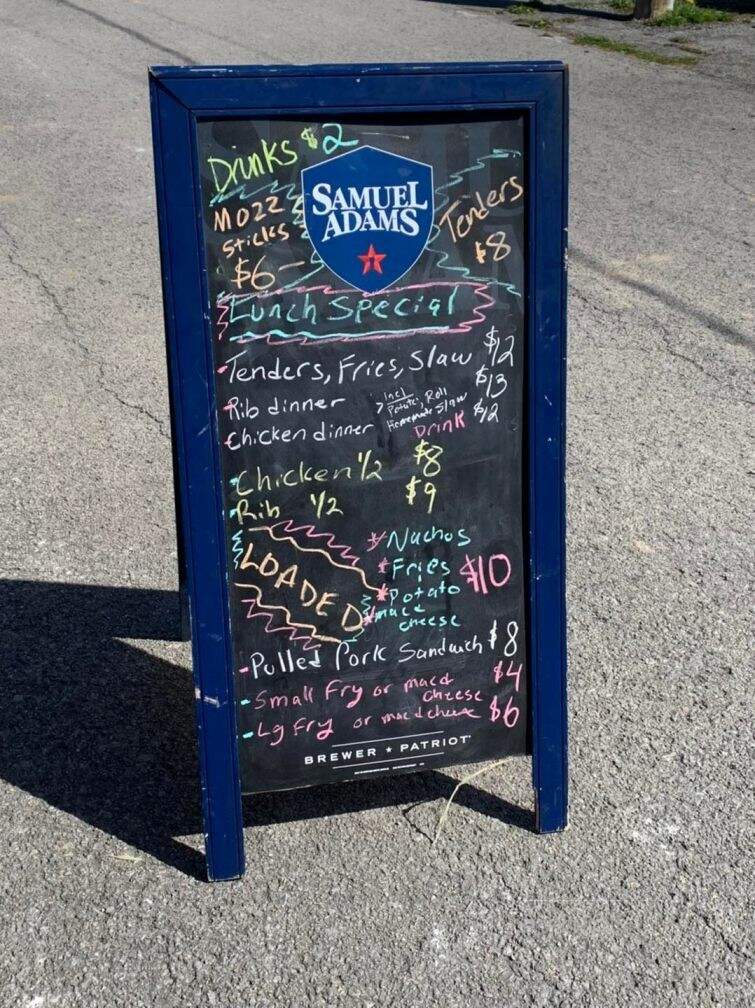 Drinks $2
Mozz
Sticks
$6
SAMUEL
ADAMS
Tenders
$8
Lunch Special
Tenders, Fries, Slaw $12
Rib dinner $13
Chicken dinner $12
Incl
Potato, Roll
Homemade Slaw
Drink
Chicken 1/2 $8
Rib 1/2 $9
LOADED
*Nachos
*Fries
*Potato
*mac &
cheese
$10
-Pulled Pork Sandwich $8
-Small Fry or mac &
cheese $4
-Lg Fry or mac & cheese $6
BREWER ★ PATRIOT